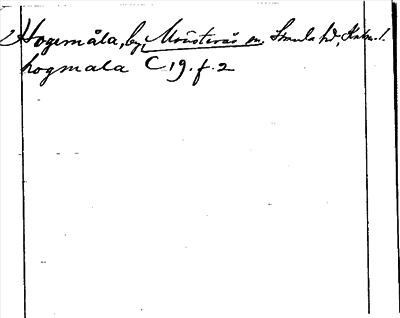 Hogemåla, by, Mönsterås sn, Stranda hd, Kalm. l.
hogmala C 19. f. 2